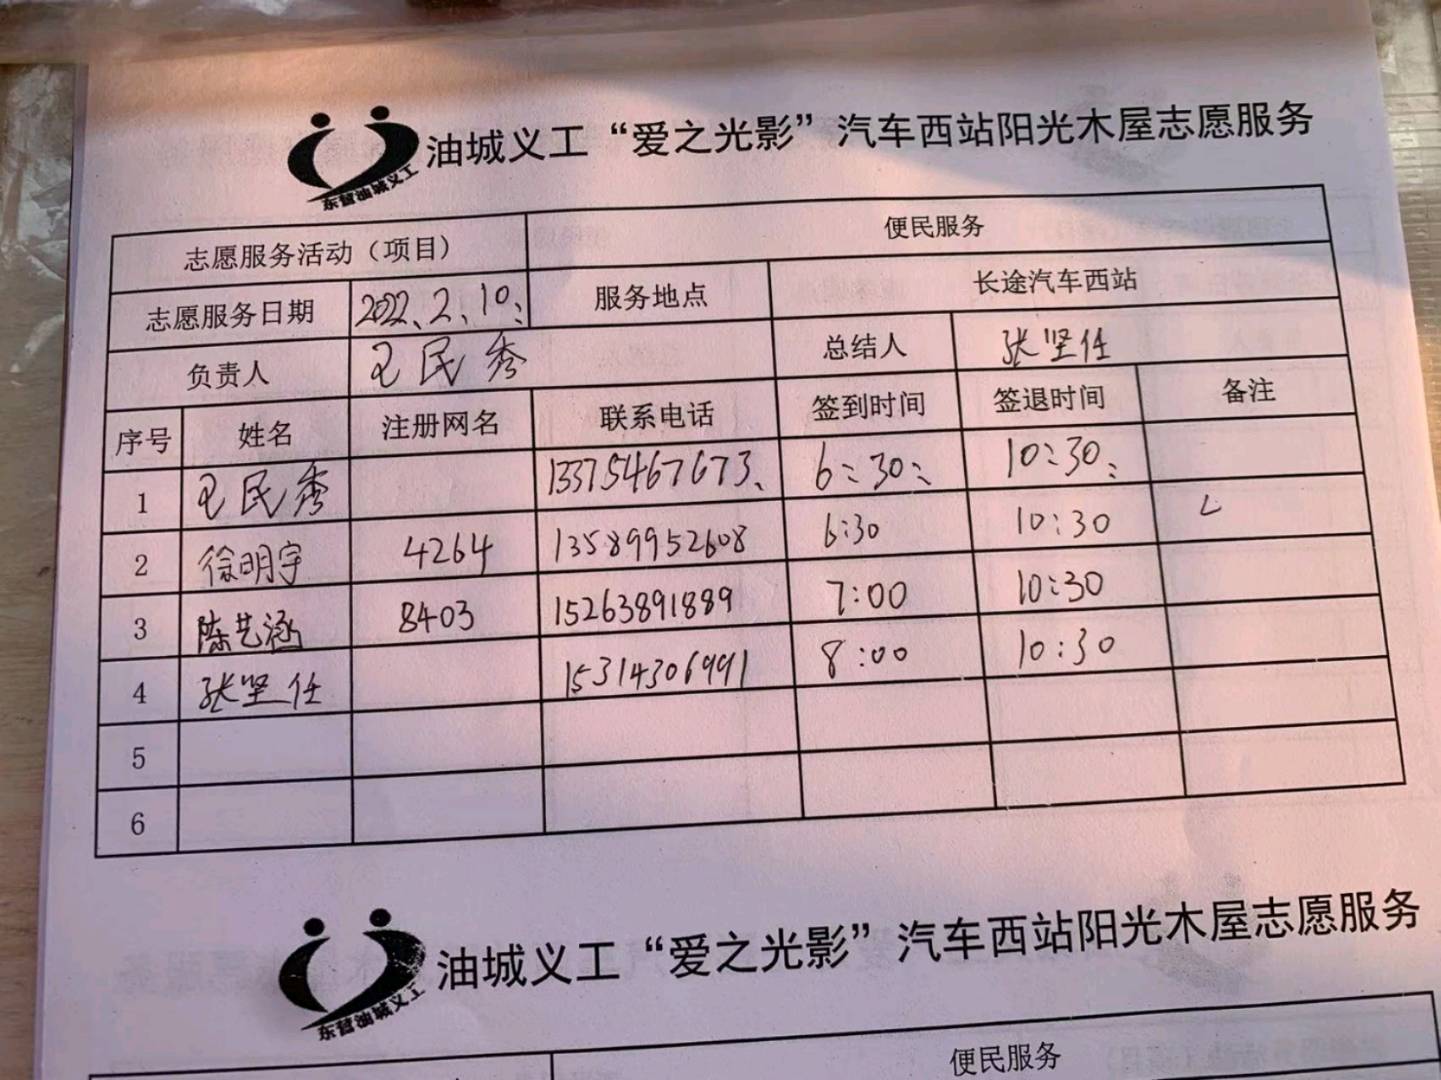 油城义工“爱之光影”汽车西站阳光木屋志愿服务
东营油城义工
志愿服务活动（项目） 便民服务
志愿服务日期 2022、2、10、 服务地点 长途汽车西站
负责人 王民秀 总结人 张坚任
序号 姓名 注册网名 联系电话 签到时间 签退时间 备注
1 王民秀 13375467673、 6:30: 10:30:
2 徐明宇 4264 13589952608 6:30 10:30
3 陈艺涵 8403 15263891889 7:00 10:30
4 张坚任 15314306991 8:00 10:30
5
6
油城义工“爱之光影”汽车西站阳光木屋志愿服务
东营油城义工
便民服务